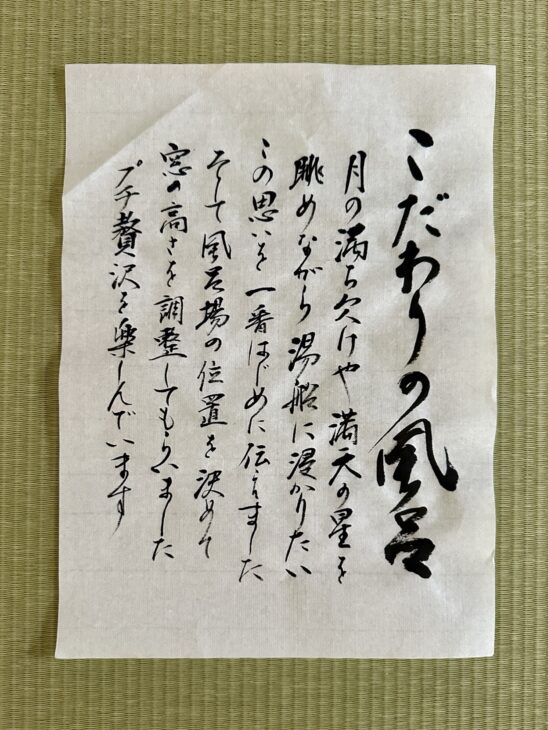 こだわりの風呂
月の満ち欠けや満天の星を
眺めながら湯船に浸かりたい
この思いを一番はじめに伝えました
そして風呂場の位置を決めて
窓の高さを調整してもらいました
プチ贅沢を楽しんでいます